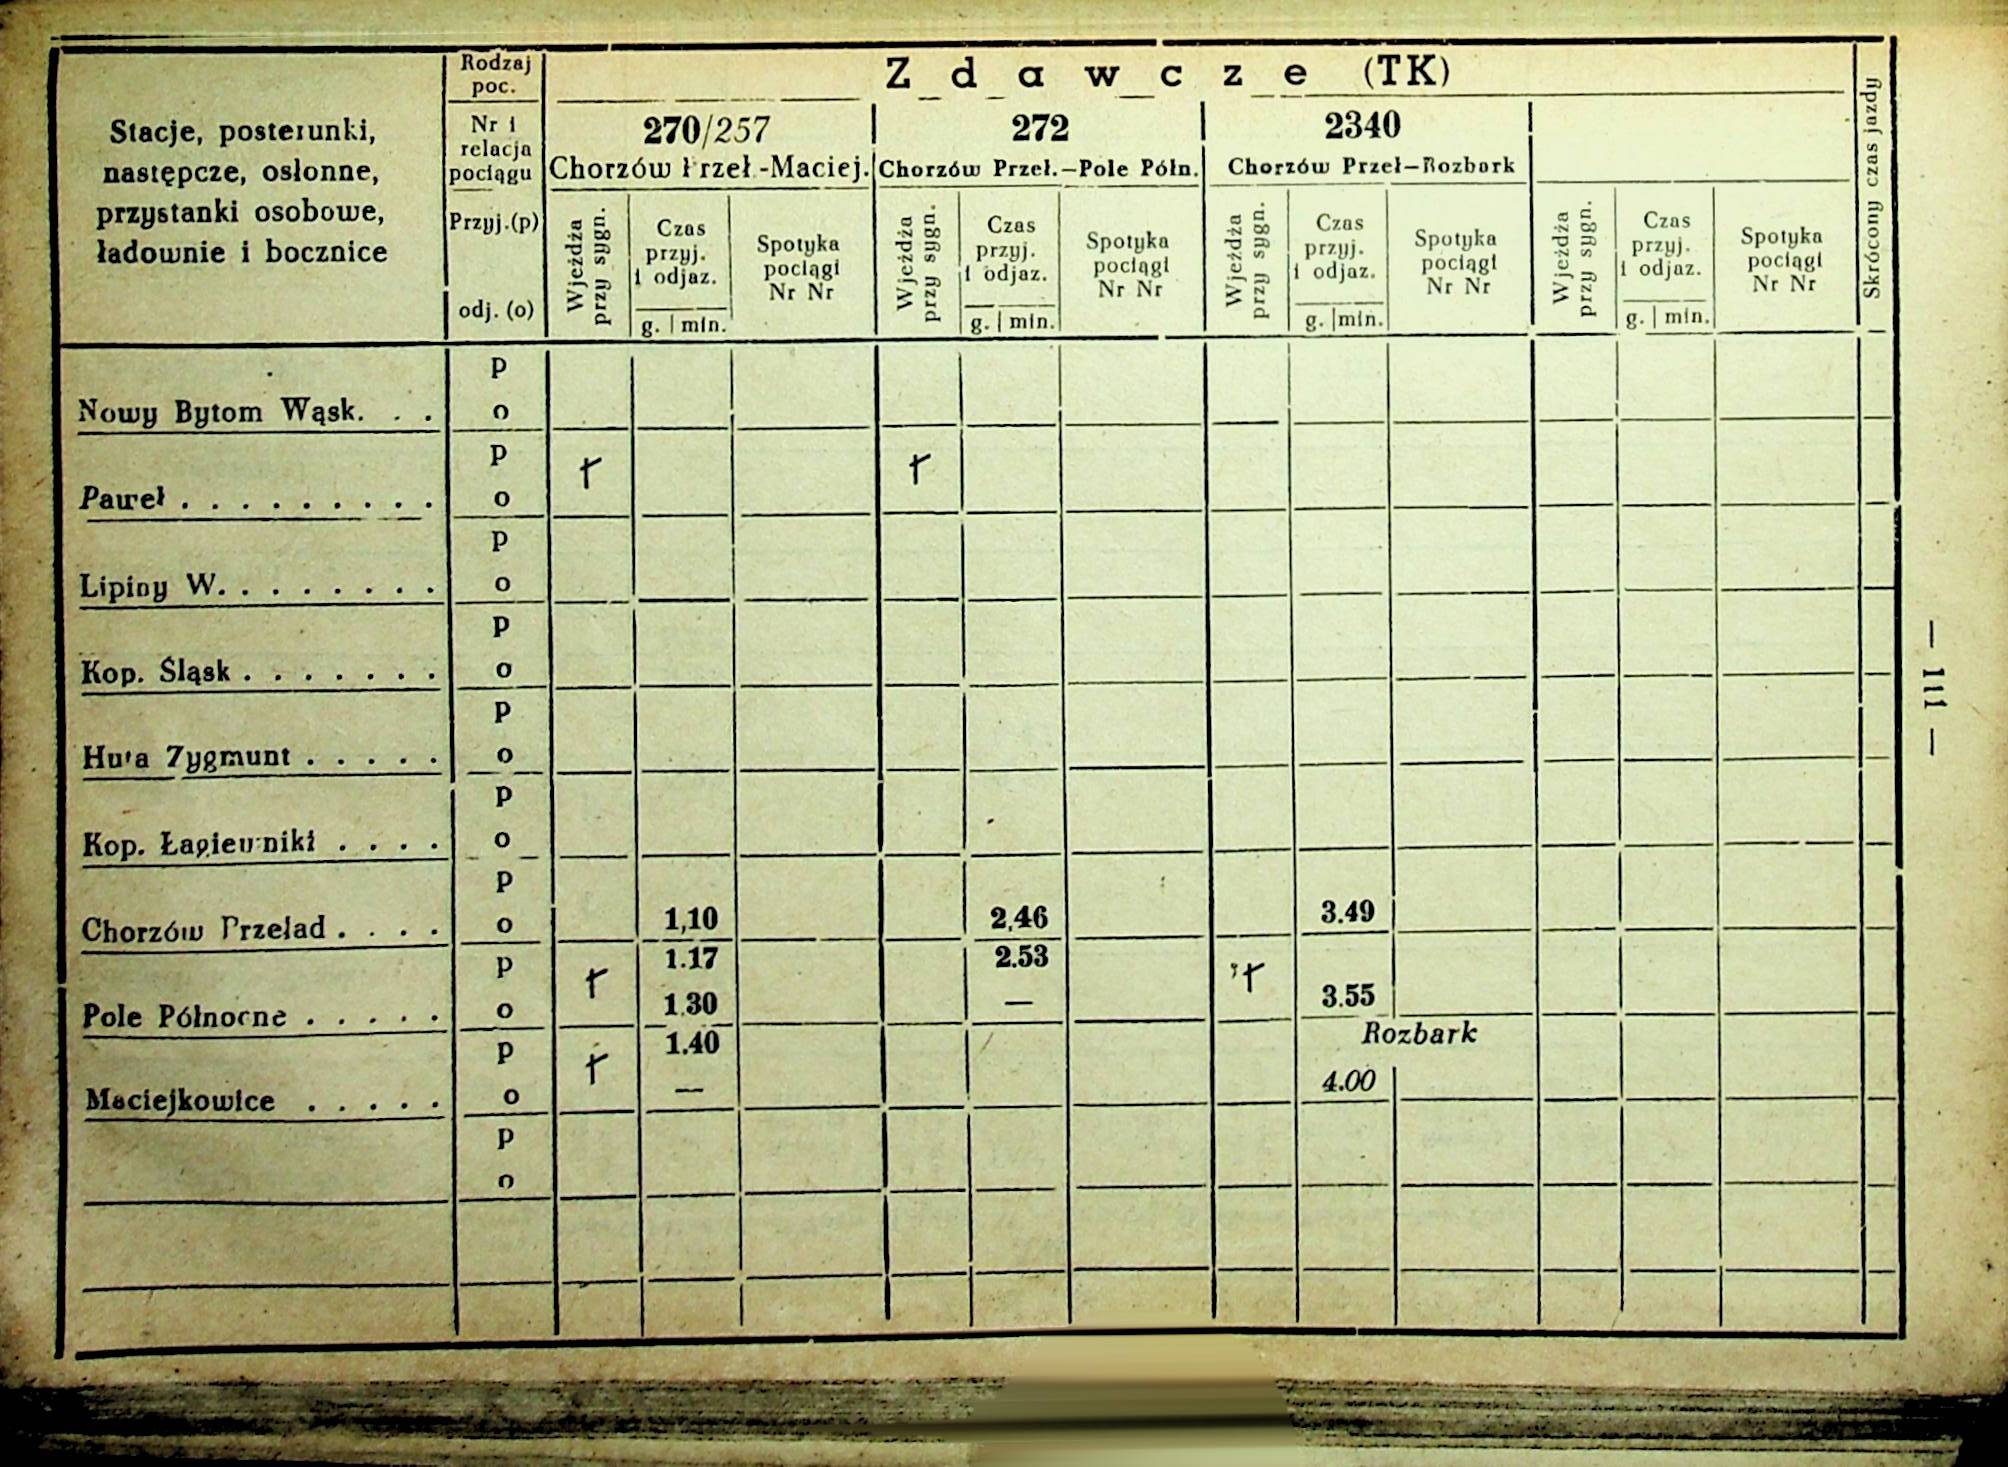 Zdawcze (TK)
Stacje, posterunki,
następcze, osłonne,
przystanki osobowe,
ładownie i bocznice
Rodzaj
poc.
Nr i
relacja
pociągu
Przyj.(p)
odj. (o)
270/257
Chorzów Przeł.-Maciej.
Wjeżdża
przy sygn.
Czas
przyj.
i odjaz.
g. | min.
Spotyka
pociągi
Nr Nr
272
Chorzów Przeł.—Pole Półn.
Wjeżdża
przy sygn.
Czas
przyj.
i odjaz.
g. | min.
Spotyka
pociągi
Nr Nr
2340
Chorzów Przeł—Rozbark
Wjeżdża
przy sygn.
Czas
przyj.
i odjaz.
g. | min.
Spotyka
pociągi
Nr Nr
Wjeżdża
przy sygn.
Czas
przyj.
i odjaz.
g. | min.
Spotyka
pociągi
Nr Nr
Skrócony czas jazdy
p
Nowy Bytom Wąsk. . . o
p
Paweł . . . . . . . . . o
p
Lipiny W. . . . . . . . o
p
Kop. Śląsk . . . . . . . o
p
Huta Zygmunt . . . . . o
p
Kop. Łagiewniki . . . . o
p
Chorzów Przeład . . . . o 1,10 2,46 3.49
p 1.17 2.53
Pole Północne . . . . . o 1.30 — 3.55
p 1.40 Rozbark
Maciejkowice . . . . . o — 4.00
p
o
— 111 —